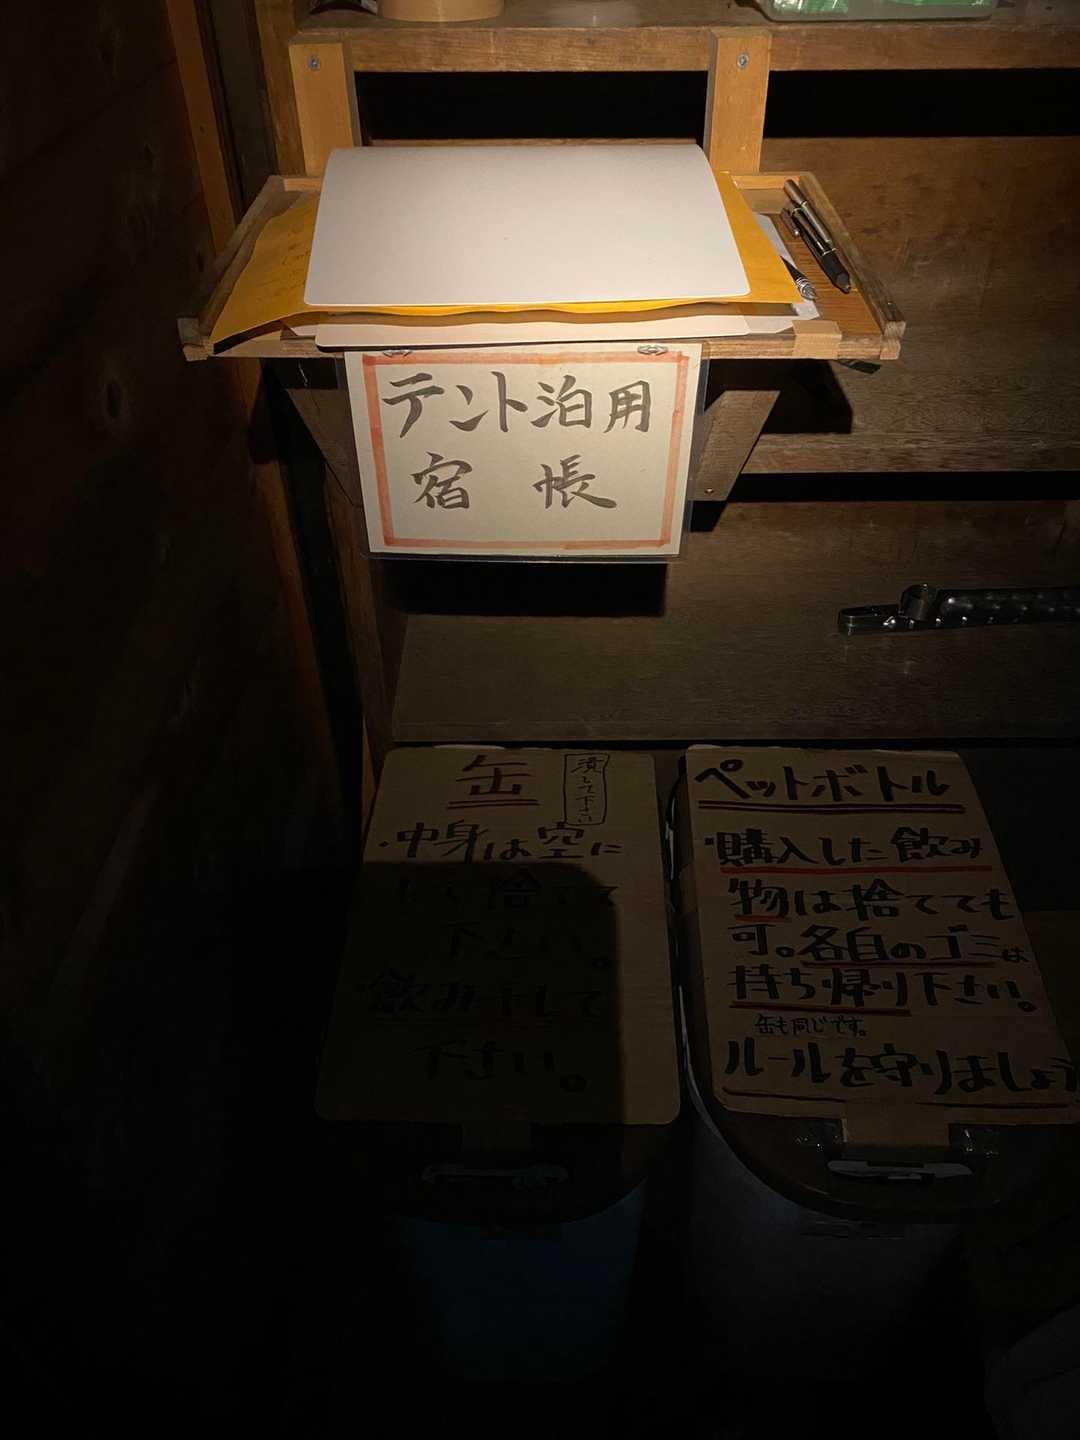 テント泊用
宿帳
缶
潰して下さい
・中身は空に
して捨てて
下さい。
飲み干して
下さい。
ペットボトル
・購入した飲み
物は捨てても
可。各自のゴミは
持ち帰り下さい。
缶も同じです。
ルールを守りましょう